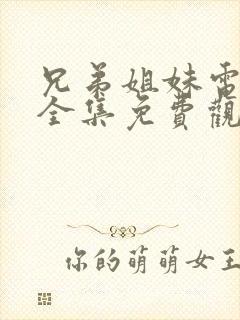 兄弟姐妹電
全集免費觀
你的萌萌女王